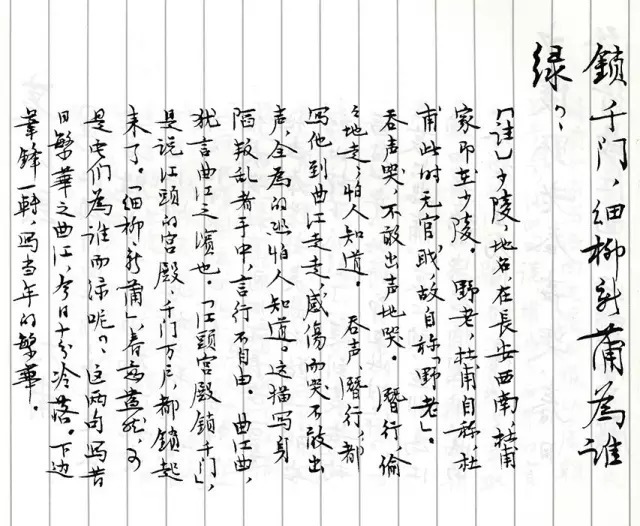 鎖千门，细柳新蒲為谁
绿？
【注】少陵，地名，在長安西南，杜甫
家即在少陵。野老，杜甫自称，杜
甫此时无官职，故自称「野老」。
吞声哭，不敢出声地哭。潛行，偷
偷地走，怕人知道。吞声，潛行，都
写他到曲江走走，感傷而哭不敢出
声，全為的恐怕人知道。这描写身
陷叛乱者手中，言行不自由。曲江曲，
犹言曲江之濱也。「江頭宮殿鎖千门」，
是说江頭的宫殿，千门万户，都鎖起
来了。「细柳新蒲」，春意盎然，可
是它们為谁而绿呢？这两句写昔
日繁華之曲江，今日十分冷落。下边
筆鋒一轉，写当年的繁華。